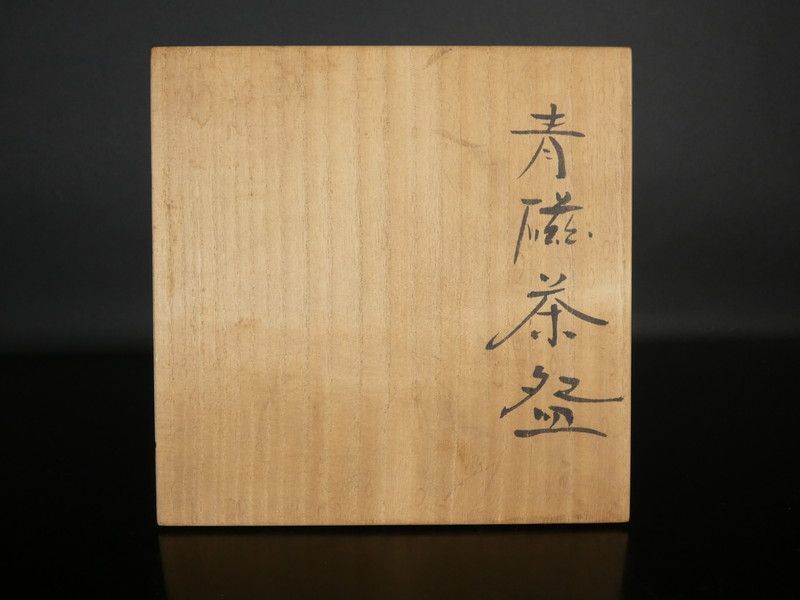 青磁茶盌